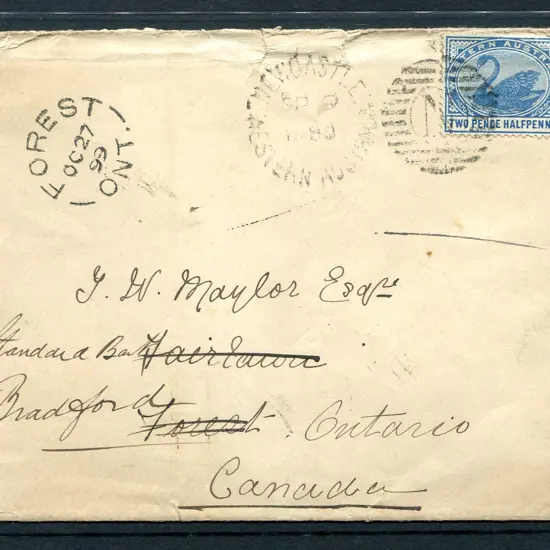 FOREST
OC 27
99
ONT.
NEWCASTLE
SP 9
99
WESTERN AUSTRALIA
TWO PENCE HALFPENNY
J. W. Maylor Esqre
Standard Bank Fairlawn
Bradford Forest. Ontario
Canada